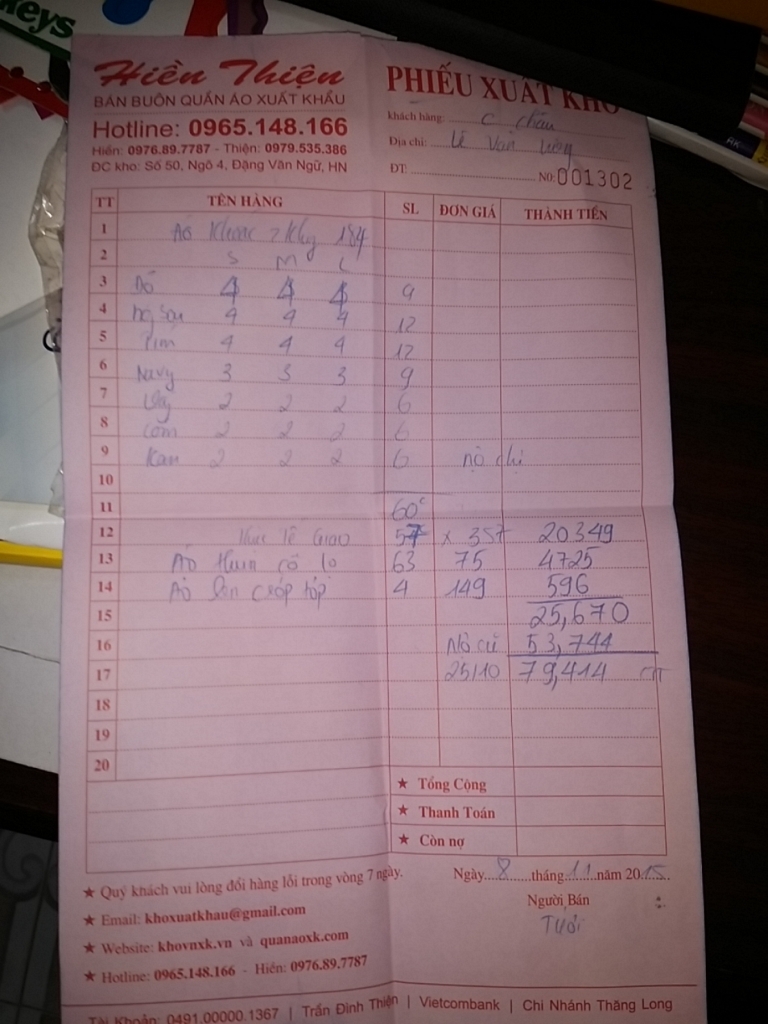 eys
Hiền Thiện
BÁN BUÔN QUẦN ÁO XUẤT KHẨU
Hotline: 0965.148.166
Hiền: 0976.89.7787 - Thiện: 0979.535.386
ĐC kho: Số 50, Ngõ 4, Đặng Văn Ngữ, HN
PHIẾU XUẤT KHO
khách hàng: C Châu
Địa chỉ: Lê Văn Lương
ĐT: N0: 001302
TT TÊN HÀNG SL ĐƠN GIÁ THÀNH TIỀN
1 Áo khoác 184
2 S M L
3 Đỏ 4 4 4 9
4 4 4 4 12
5 Tím 4 4 4 12
6 Navy 3 3 3 9
7 2 2 2 6
8 Cốm 2 2 2 6
9 Kaki 2 2 2 6 nợ chị
10
11 60c
12 thực tế giao 57 x 357 20349
13 Áo thun cổ lọ 63 75 4725
14 Áo len croptop 4 149 596
15 25,670
16 Nợ cũ 53,744
17 25/10 79,414
18
19
20
★ Tổng Cộng
★ Thanh Toán
★ Còn nợ
★ Quý khách vui lòng đổi hàng lỗi trong vòng 7 ngày.
Ngày 8 tháng 11 năm 2015
★ Email: khoxuatkhau@gmail.com
Người Bán
Tươi
★ Website: khovnxk.vn và quanaoxk.com
★ Hotline: 0965.148.166 - Hiền: 0976.89.7787
Tài Khoản: 0491.00000.1367 | Trần Đình Thiện | Vietcombank | Chi Nhánh Thăng Long